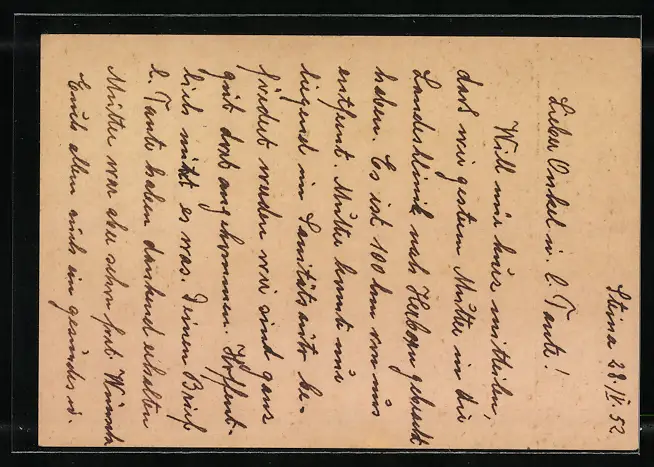 Steina 28. IV 52
Lieber Onkel u. l. Tante!
Will nur kurz mitteilen,
daß wir gestern Mutter in die
Landesklinik nach Herborn gebracht
haben. Es ist 100 km von uns
entfernt. Mutter konnte nur
liegend im Sanitätsauto be-
fördert werden wir sind ganz
gut dort angekommen. Hoffent-
lich nützt es was. Deinen Brief
l. Tante haben dankend erhalten
Mutter war aber sehr Wünsch
Euch allen auch ein gesundes u.